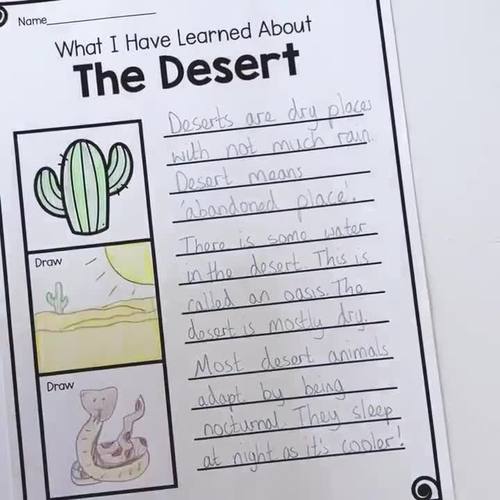 Name
What I Have Learned About
The Desert
Deserts are dry places
with not much rain.
Desert means
'abandoned place'.
There is some water
in the desert. This is
called an oasis. The
desert is mostly dry.
Most desert animals
adapt by being
nocturnal. They sleep
at night as it's cooler!
Draw
Draw